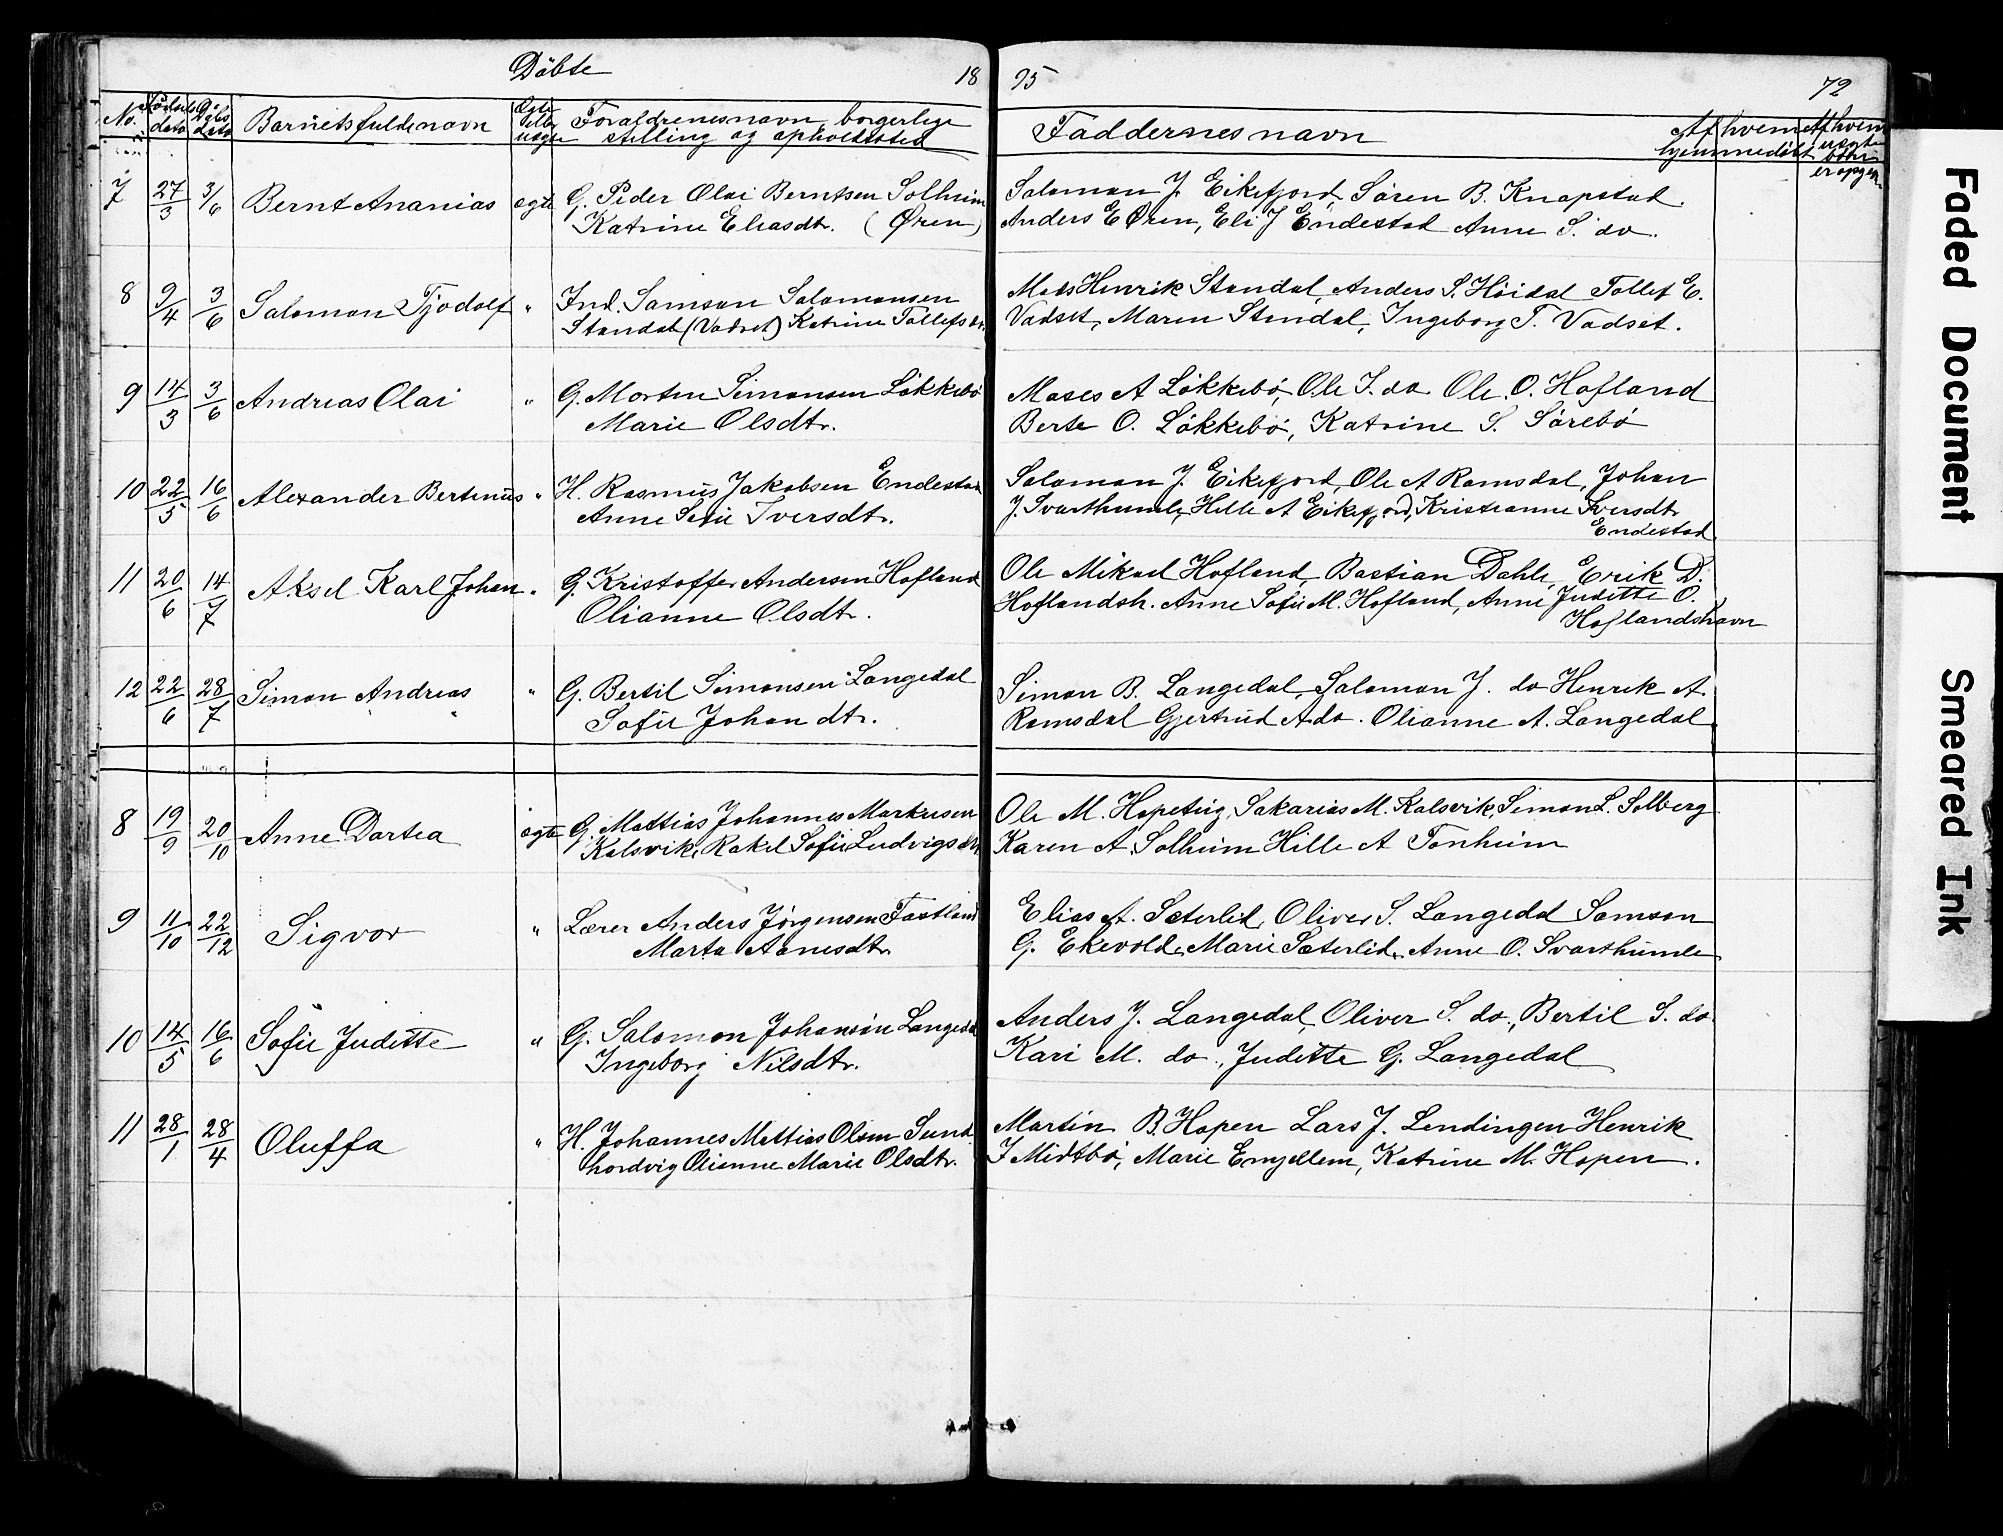 Döbte 18 95 72
No. Födsels dato Döbs dato Barnets fulde navn Ægte eller uægte Forældrenes navn, borgerlige stilling og opholdssted Faddernes navn Af hvem hjemmedöbt Af hvem uægte
7 27/3 3/6 Bernt Ananias ægte G. Peder Olai Berntsen Solheim Salomon J. Eikefjord, Sören B. Knapstad.
Katrine Eliasdtr. (Øren) Anders E Øren, Eli J Endestad Anne S. do.
8 9/4 3/6 Salomon Tjodolf " Ind. Samson Salomonsen Mads Henrik Standal, Anders S. Höidal Tollef E.
Standal (Vadset) Katrine Tollefsdtr. Vadset, Maren Standal, Ingeborg T. Vadset.
9 14/3 3/6 Andreas Olai " G. Morten Simonsen Lökkebö Moses A Lökkebö, Ole I. do Ole. O. Hofland
Marie Olsdtr. Berte O. Lökkebö, Katrine S. Sörebö
10 22/5 16/6 Alexander Bertinus " H. Rasmus Jakobsen Endestad Salomon J. Eikefjord, Ole A Ramsdal, Johan
Anne Sofie Iversdtr. J. Svarthumle, Hille A Eikefjord, Kristianne Iversdtr
Endestad
11 20/6 14/7 Aksel Karl Johan " G. Kristoffer Andersen Hofland Ole Mikael Hofland, Bastian Dahle, Erik D.
Olianne Olsdtr. Hoflandsh. Anne Sofie M. Hofland, Anne Juditte O.
Hoflandshavn
12 22/6 28/7 Simon Andreas " G. Bertil Simonsen Langedal Simon B. Langedal, Salomon J. do Henrik A.
Sofie Johandtr. Ramsdal Gjertrud A do. Olianne A. Langedal
8 19/9 20/10 Anne Dortea ægte G. Mattias Johannes Markusen Ole M. Hopeteig, Sakarias M. Kalsvik, Simon L. Solberg
Kalsvik, Rakel Sofie Ludvigsdtr Karen A. Solheim Hille A Tonheim
9 11/10 22/12 Sigvor " Lærer Anders Jörgensen Fastland Elias A. Sæterlid, Oliver S. Langedal Samson
Marta Aanesdtr G. Ekevold, Marie Sæterlid, Anne O. Svarthumle
10 14/5 16/6 Sofie Juditte " G. Salomon Johansön Langedal Anders J. Langedal, Oliver S. do., Bertil S. do
Ingeborg Nilsdtr. Kari M. do., Juditte G. Langedal
11 28/1 28/4 Oluffa " H. Johannes Mattias Olsen Sund Martin B. Hopen Lars J. Lendingen Henrik
hordvig Olianne Marie Olsdtr. I Midtbö, Marie Emjellem, Katrine M. Hopen.
Faded Document
Smeared Ink